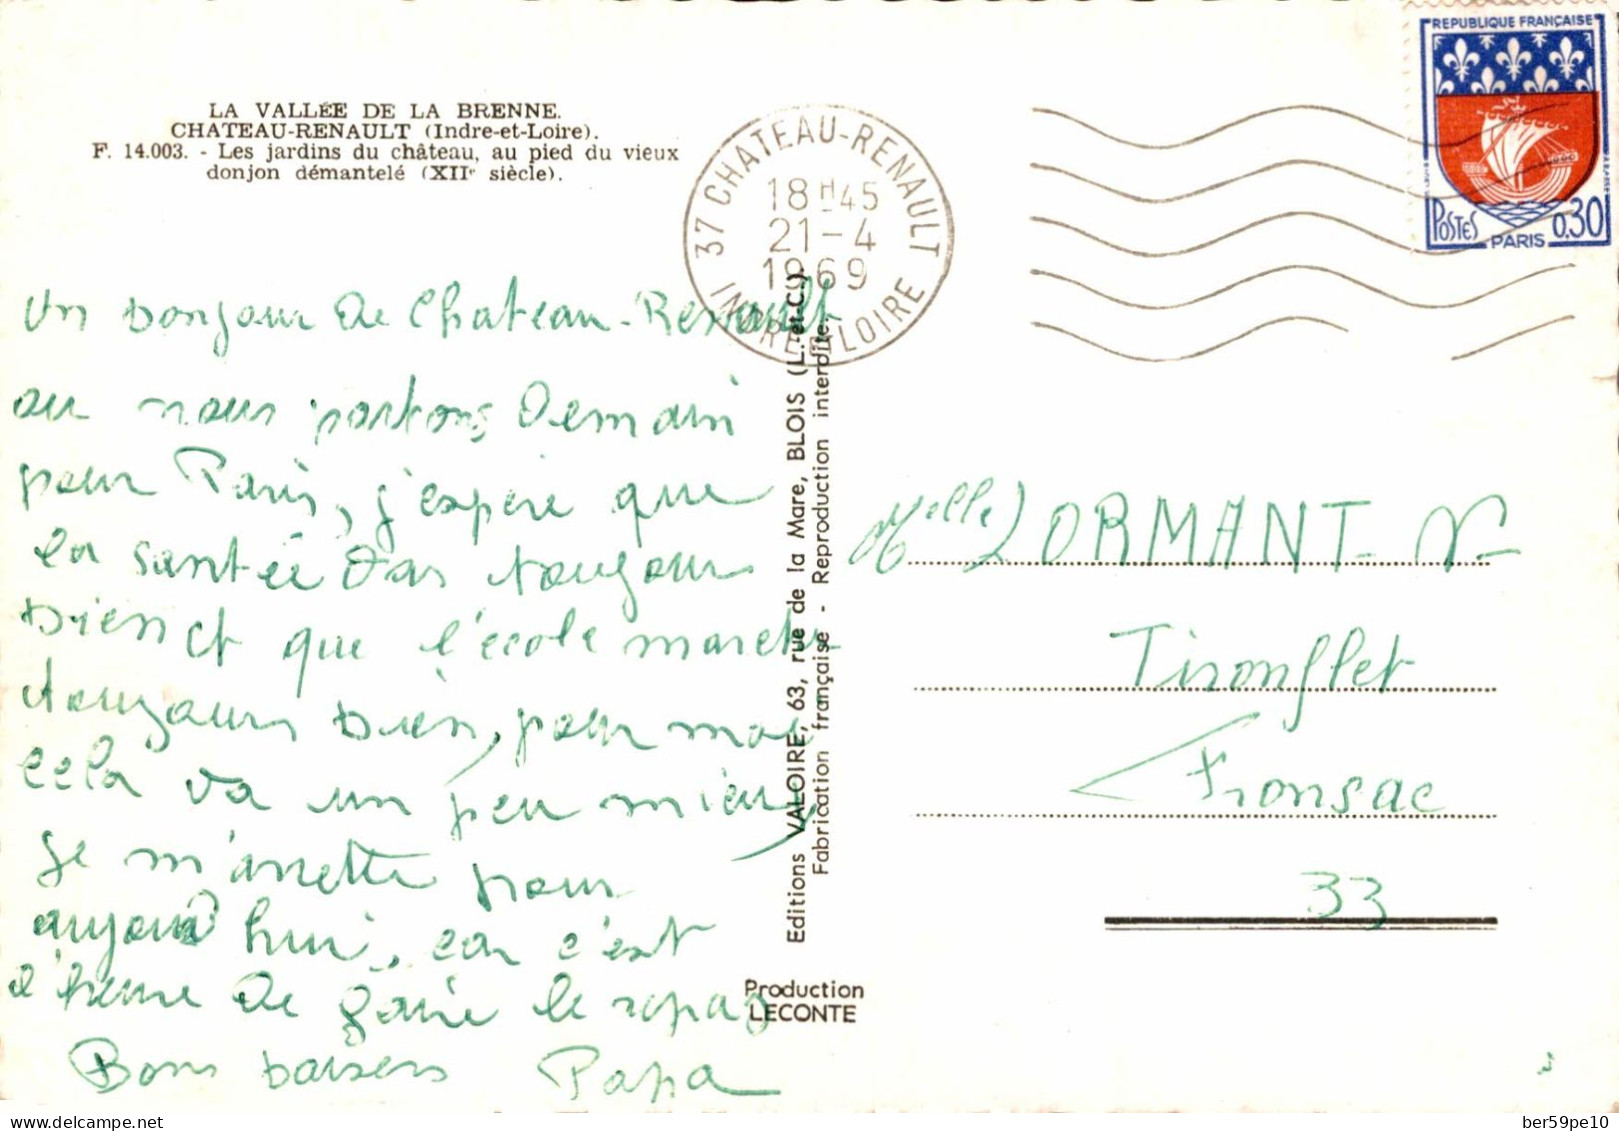 LA VALLÉE DE LA BRENNE.
CHATEAU-RENAULT (Indre-et-Loire).
F. 14.003. - Les jardins du château, au pied du vieux
donjon démantelé (XIIe siècle).
Un bonjour de Chateau-Renault
ou nous partons, demain
pour Paris, j'espère que
la santée vas toujour
bien et que l'école marche
toujours bien, pour moi
cela va un peu mieux
je m'arrette pour
aujourd'hui, car c'est
l'heure de faire le repas
Bons baisers Papa
37 CHATEAU-RENAULT
18H45
21-4
1969
INDRE & LOIRE
REPUBLIQUE FRANÇAISE
POSTES PARIS 0,30
Editions VALOIRE, 63, rue de la Mare, BLOIS (L.-et-C.).
Fabrication française - Reproduction interdite.
Production
LECONTE
Melle LORMANT- N-
Tironflet
Fronsac
33
delcampe.net
ber59pe10